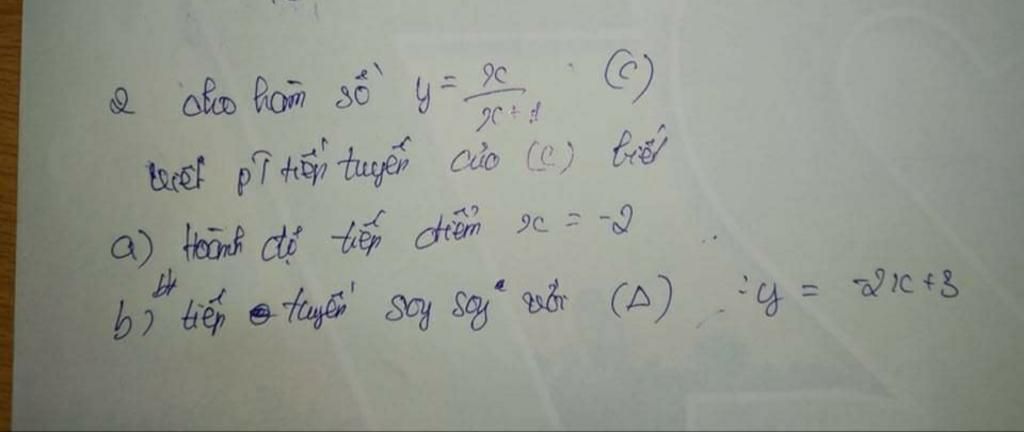 2 cho hàm số y = x/(x+1) (C)
viết pT tiếp tuyến của (C) biết
a) Hoành độ tiếp điểm x = -2
b) tiếp tuyến soy soy với (Δ) : y = -2x+3